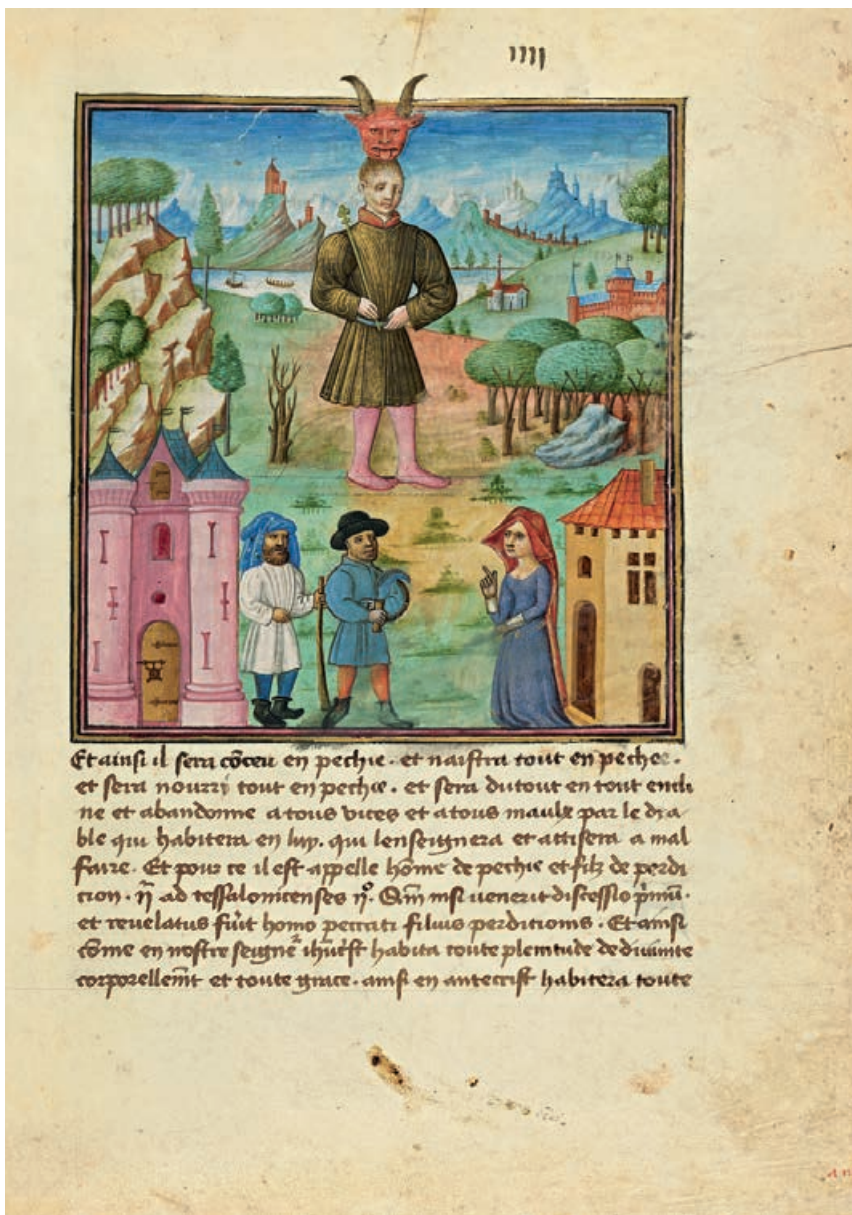 ıııȷ
Et ainsi il sera cõceu en pechie · et naistra tout en pechee ·
et sera nourri tout en pechie · et sera du tout en tout encli
ne et abandonne a tous vices et a tous maulx par le dya
ble qui habitera en luy · qui lenseignera et attisera a mal
faire · Et pour ce il est appelle hõme de pechie et filz de perdi
cion · ij̃ ad tessalonicenses ijº · Qm̃ nisi venerit discessio p̃mũ ·
et revelatus fũit homo peccati filius perditionis · Et ainsi
cõme en nostre seignẽ ihũcrist habita toute plenitude de divinite
corporellem̃t et toute grace · ainsi en antecrist habitera toute